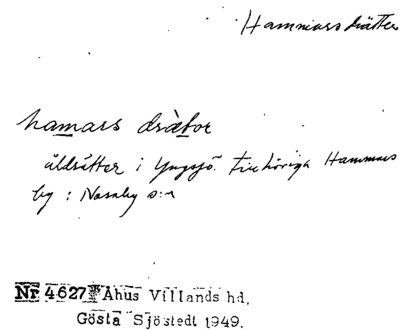 Hammars drätter
hamars dràtor
åldrätter i Yngsjö tillhöriga Hammars
by i Nosaby s:n
Nr 4627 Åhus Villands hd.
Gösta Sjöstedt 1949.